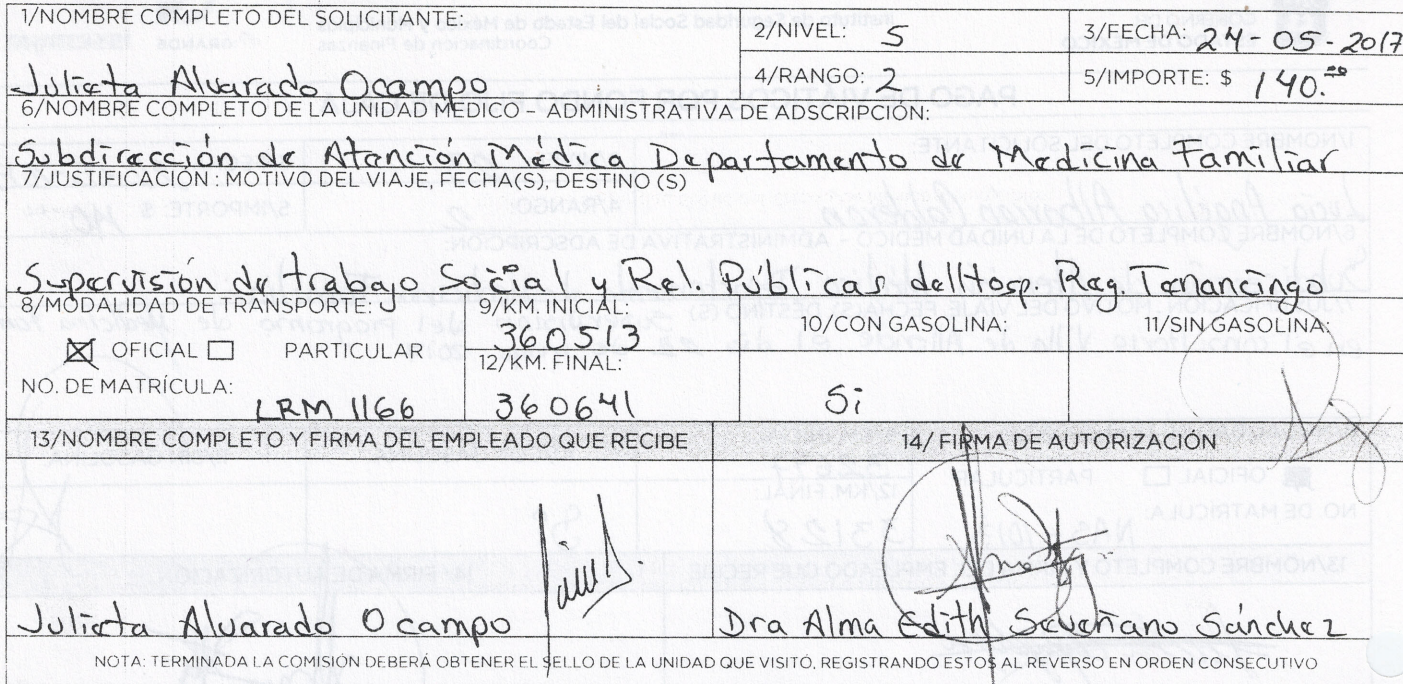 1/NOMBRE COMPLETO DEL SOLICITANTE:
Julieta Alvarado Ocampo
2/NIVEL: 5
3/FECHA: 24-05-2017
4/RANGO: 2
5/IMPORTE: $ 140.00
6/NOMBRE COMPLETO DE LA UNIDAD MÉDICO - ADMINISTRATIVA DE ADSCRIPCIÓN:
Subdirección de Atención Médica Departamento de Medicina Familiar
7/JUSTIFICACIÓN : MOTIVO DEL VIAJE, FECHA(S), DESTINO (S)
Supervisión de trabajo Social y Rel. Públicas del Hosp. Reg. Tenancingo
8/MODALIDAD DE TRANSPORTE:
OFICIAL PARTICULAR
NO. DE MATRÍCULA:
LRM 1166
9/KM. INICIAL:
360513
12/KM. FINAL:
360641
10/CON GASOLINA:
Si
11/SIN GASOLINA:
13/NOMBRE COMPLETO Y FIRMA DEL EMPLEADO QUE RECIBE
Julieta Alvarado Ocampo
14/FIRMA DE AUTORIZACIÓN
Dra Alma Edith Severiano Sánchez
NOTA: TERMINADA LA COMISIÓN DEBERÁ OBTENER EL SELLO DE LA UNIDAD QUE VISITÓ, REGISTRANDO ESTOS AL REVERSO EN ORDEN CONSECUTIVO